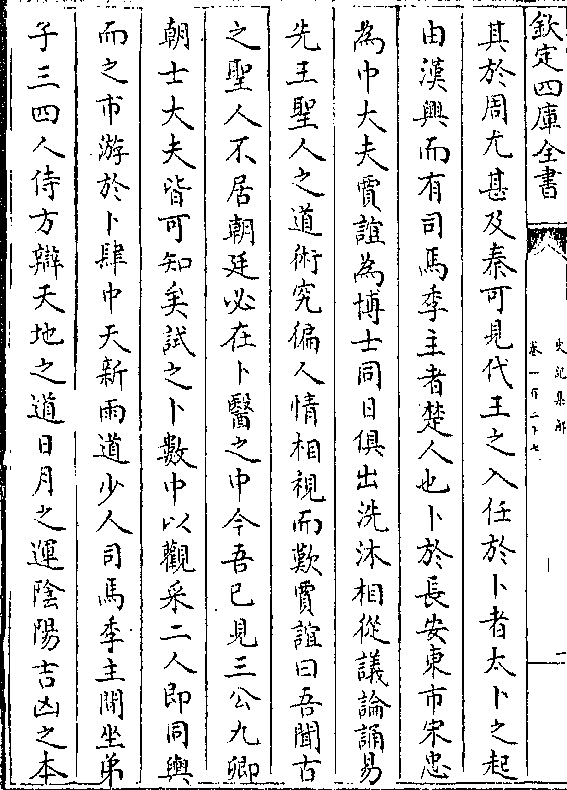 欽定四庫全書
史記集解
卷一百二十七
一
其於周尤甚及秦可見代王之入任於卜者太卜之起
由漢興而有司馬季主者楚人也卜於長安東市宋忠
為中大夫賈誼為博士同日俱出洗沐相從議論誦易
先王聖人之道術究徧人情相視而歎賈誼曰吾聞古
之聖人不居朝廷必在卜醫之中今吾已見三公九卿
朝士大夫皆可知矣試之卜數中以觀采二人即同輿
而之市游於卜肆中天新雨道少人司馬季主閒坐弟
子三四人侍方辯天地之道日月之運陰陽吉凶之本